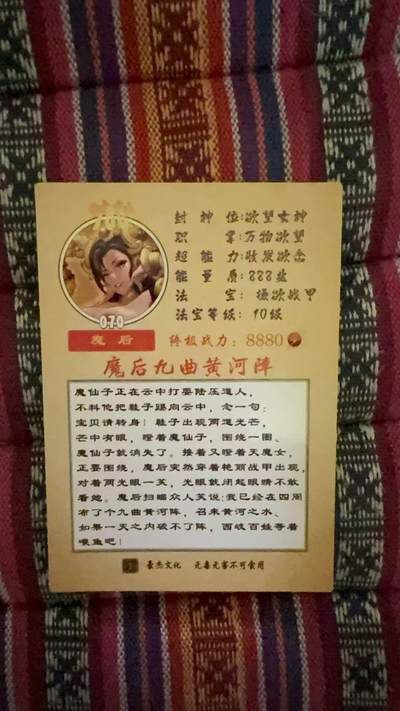 封神位:欲望女神
职掌:万物欲望
超能力:收发欲念
能量质:888度
法宝:摄欲战甲
法宝等级:10级
070
魔后
终极战力:8880
魔后九曲黄河阵
魔仙子正在云中打耍陆压道人,
不料他把鞋子踢向云中,念一句:
宝贝请转身!鞋子出现两道光芒,
芒中有眼,瞪着魔仙子,围绕一圈,
魔仙子就消失了。接着又瞪着天魔女,
正要围绕,魔后突然穿着艳丽战甲出现,
对着两光眼一笑,光眼就闭起眼睛不敢
看她。魔后扫瞄众人笑说:我已经在四周
布了个九曲黄河阵,召来黄河之水,
如果一天之内破不了阵,西岐百姓等着
喂鱼吧!
豪杰文化 无毒无害不可食用